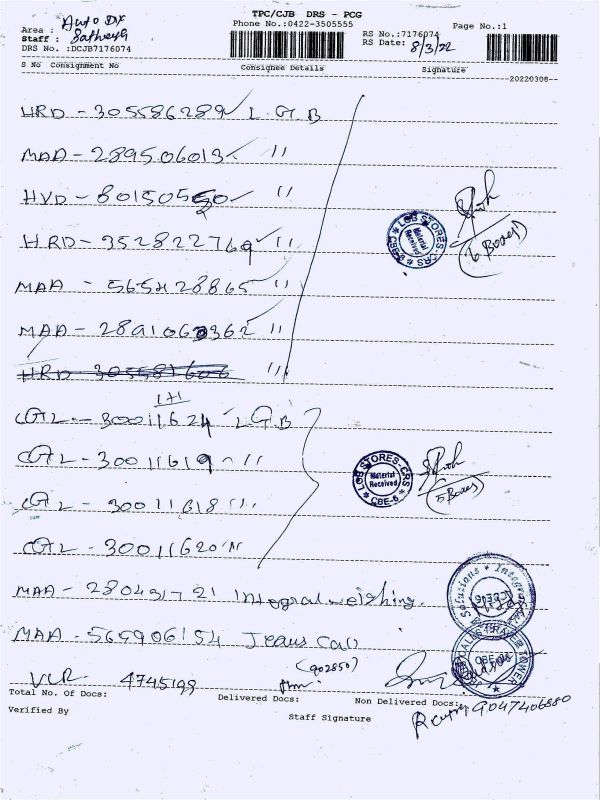 TPC/CJB DRS - PCG
Phone No.:0422-3505555
Page No.:1
Area : Auto DX
Staff : Sathiya
DRS No. :DCJB7176074
RS No.:7176074
RS Date: 8/3/22
S No Consignment No Consignee Details Signature
20220308
HRD - 305586289 L G B
MAA - 289506013 "
HVD - 80150550 "
HRD - 352822769 "
MAA - 565428865 "
MAA - 2891060362 "
HRD 305581606 "
1+1
CGL - 30011624 L G B
CGL - 30011619 "
CGL - 30011618 "
CGL - 30011620 "
MAA - 280431721 Integral weishing.
MAA - 565906154 Jeans Call
(902850)
VLR - 4745199
LGB STORES-CRS
Material Received
(6 Boxes)
LGB STORES-CRS
Material Received
CBE-6
(5 Boxes)
Total No. Of Docs: Delivered Docs: Non Delivered Docs:
9047406880
Verified By
Staff Signature